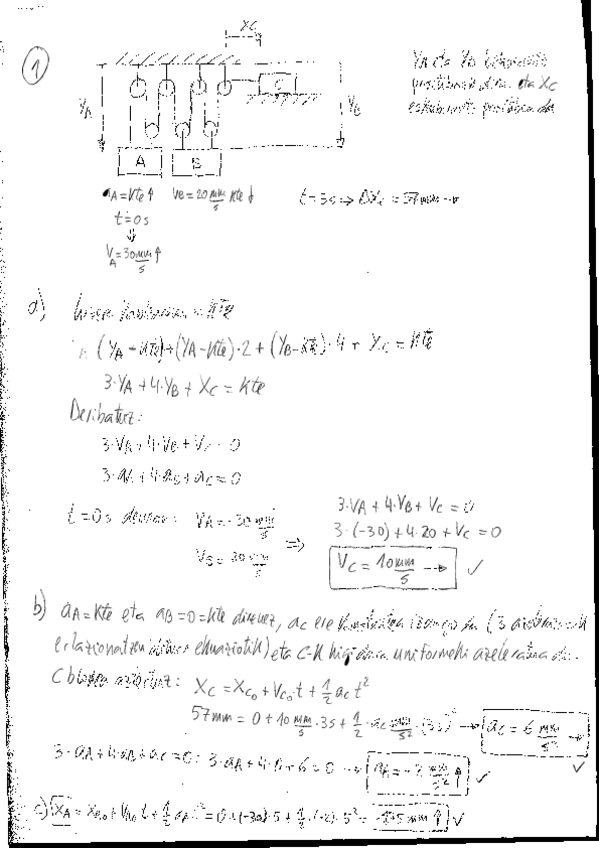 1
XC
YA
YB
C
A
B
YA eta YB beheranzko
positiboak dira eta XC
eskubirantz positiboa da
aA=kte↑ VB=20 mm/s kte↓ t=3s => ΔXC = 57mm →
t=0s
VA=30 mm/s ↑
a) = kte
(YA-kte)+(YA-kte)·2+(YB-kte)·4+ XC = kte
3·YA+4·YB+XC = kte
Deribatuz:
3·VA+4·VB+VC=0
3·aA+4·aB+aC=0
t=0s denean: VA=-30 mm/s =>
3·VA+4·VB+VC=0
3·(-30)+4·20+VC=0
VC=10 mm/s → ✓
b) aA=kte eta aB=0=kte direnez, aC ere konstantea izango da (3
ekuaziotik) eta C-k higidura uniformeki azeleratua du.
C blokea aztertuz: XC=XC0+VC0·t+1/2 aC t²
57mm = 0+10 mm/s·3s+1/2·aC mm/s²·(3s)² → aC=6 mm/s² →
✓
3·aA+4·aB+aC=0: 3·aA+4·0+6=0 → aA=-2 mm/s² ↑ ✓
c) XA = XA0+VA0 t+1/2 aA t²=0+(-30)·5+1/2·(-2)·5²= -175 mm ↑ ✓